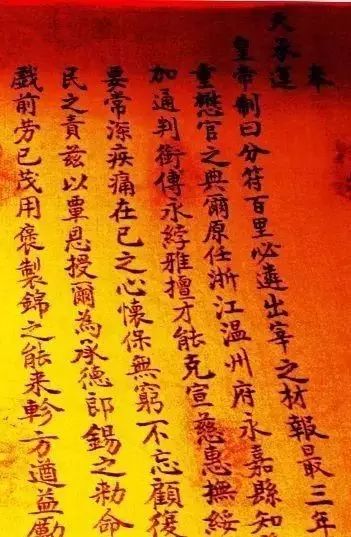 奉
天承運
皇帝制曰分符百里必遴出宰之材報最三年
重懋官之典爾原任浙江温州府永嘉縣知
加通判銜傅永綍雅擅才能克宣慈惠撫綏
要常深疾痛在已之心懷保無窮不忘顧復
民之責茲以覃恩授爾為承德郎錫之勅命
戲前芳已茂用褒製錦之能来軫方遒益勵